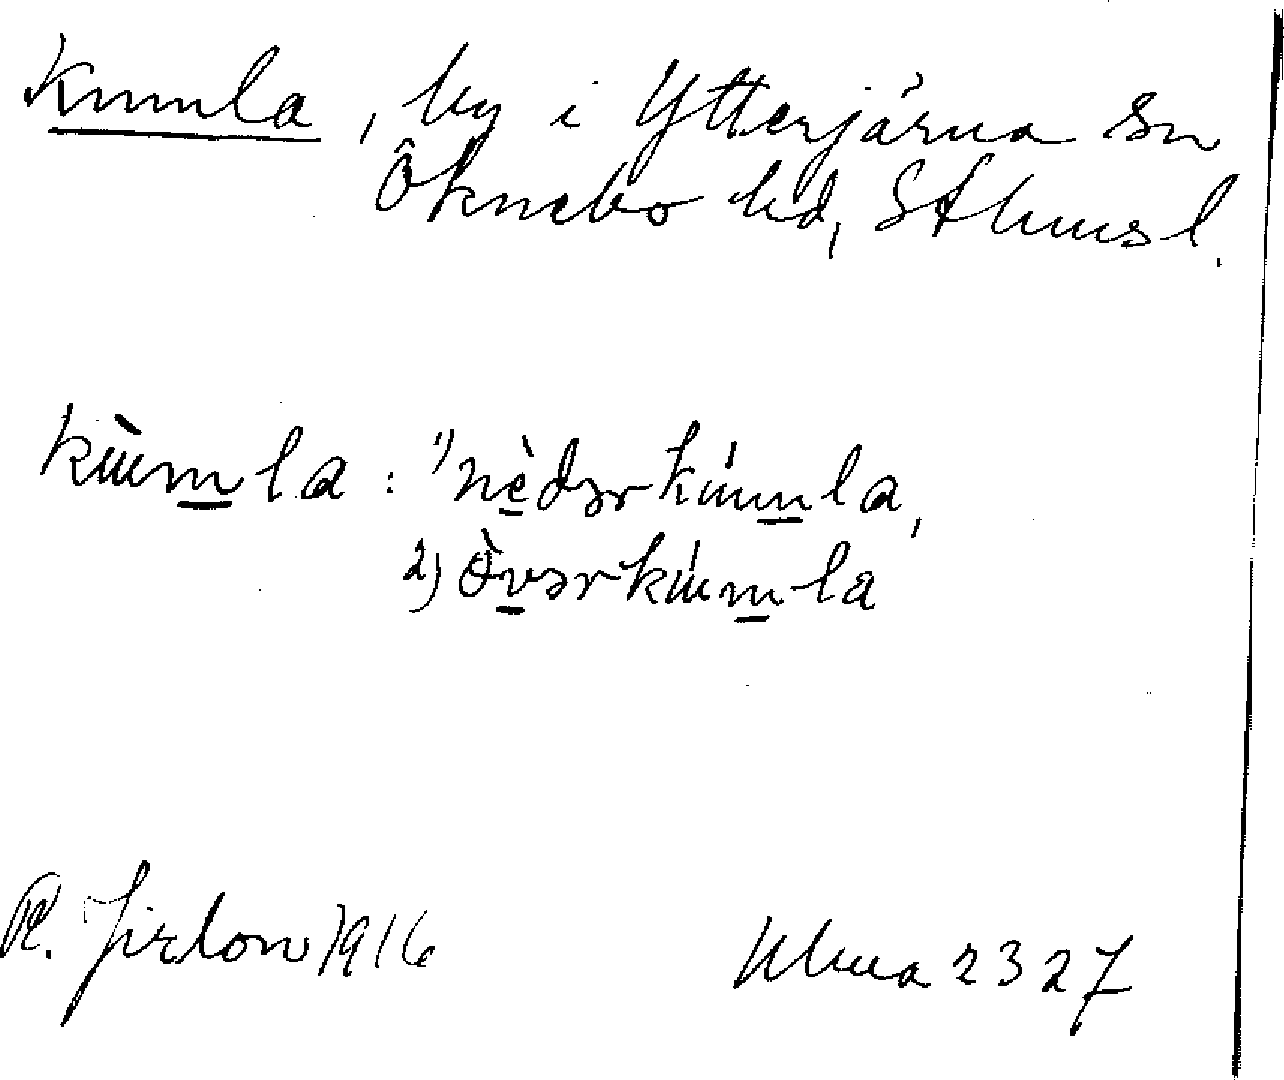 Kumla, by i Ytterjärna sn
Öknebo hd, Sthmsl.
kùmla : 1) nèdərkúmla,
2) Övərkúmla
R. Jirlow 1916
Ulma 2327